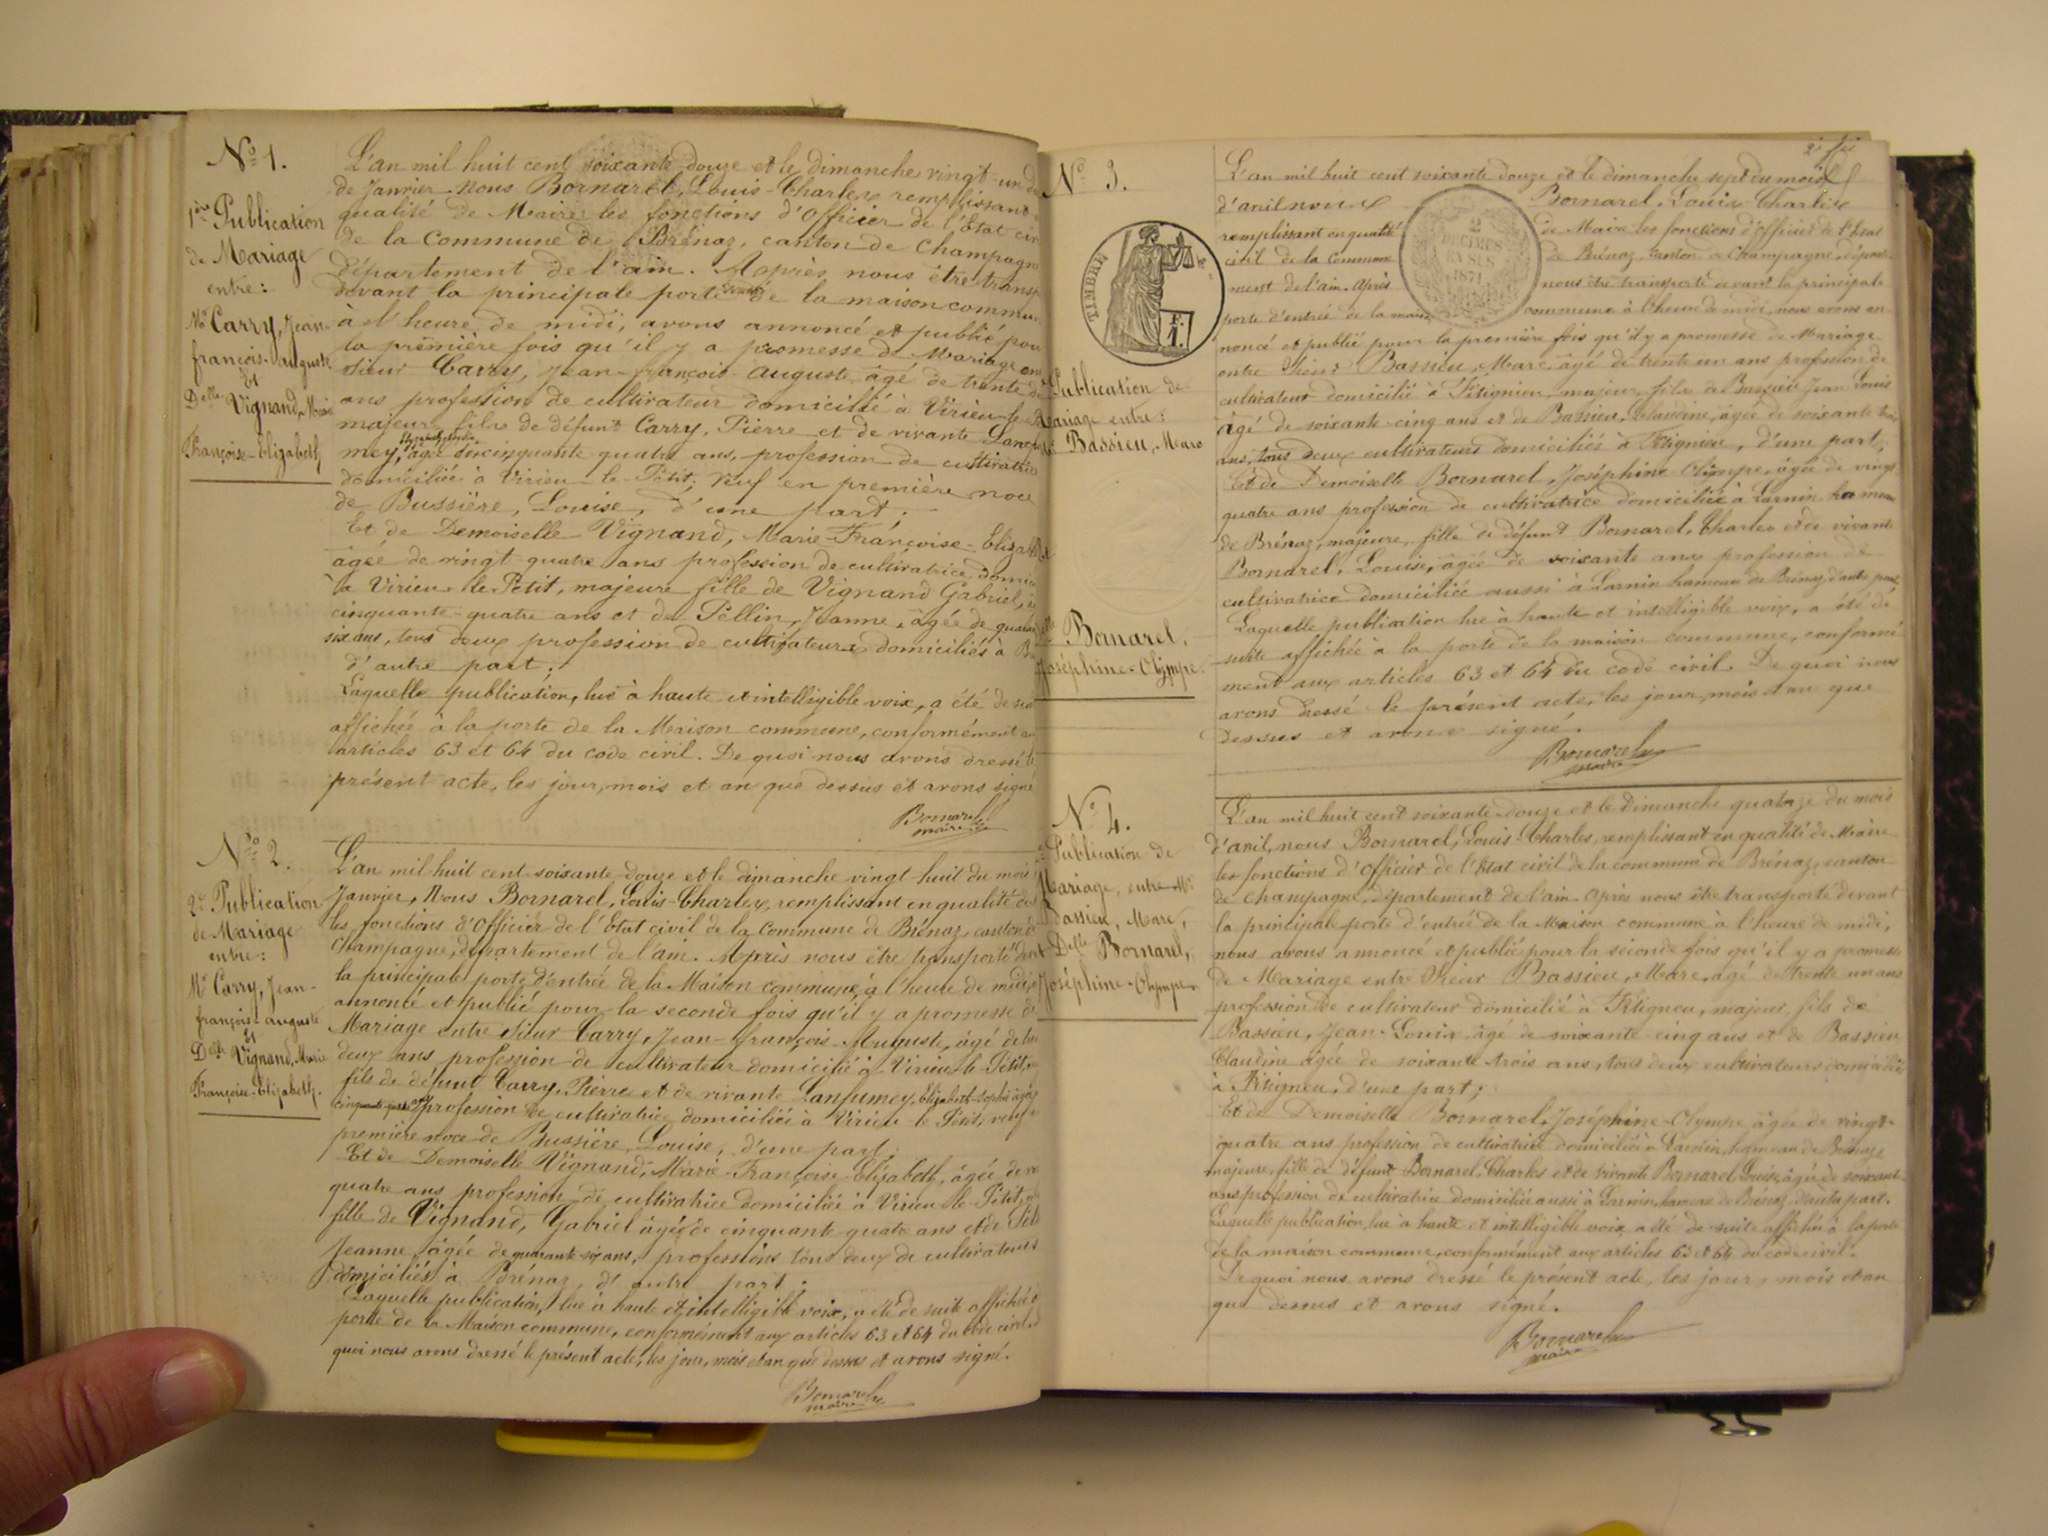 N° 1.
1ère Publication
de Mariage
entre :
Mr Carry, Jean-
françois-auguste
Et
Delle Vignand, Marie
Françoise-Elizabeth
L'an mil huit cent soixante douze et le dimanche vingt-un du
de Janvier Nous Bornarel, Louis-Charles remplissant
qualité de Maire les fonctions d'Officier de l'Etat civ
de la Commune de Brénaz, canton de Champagne
département de l'ain. Après nous être transp
devant la principale porte d'entrée de la maison commun
à l'heure de midi, avons annoncé et publié pour
la première fois qu'il y a promesse de Mariage en
Sieur Carry, Jean-françois-auguste âgé de trente de
ans profession de cultivateur domicilié à Virieu-le-P
majeur, fils de défunt Carry, Pierre et de vivante Lanfu
mey, Elizabeth-Sophie âgée de cinquante quatre ans, profession de cultivatrice
domiciliée à Virieu-le-Petit; veuf en première noce
de Bussière, Louise, d'une part;
Et de Demoiselle Vignand, Marie-Françoise-Elizabeth
âgée de vingt quatre ans profession de cultivatrice domici
à Virieu-le-Petit, majeure fille de Vignand Gabriel, â
cinquante-quatre ans et de Pellin, Jeanne, âgée de quaran
six ans, tous deux profession de cultivateurs domiciliés à B
d'autre part;
Laquelle publication, lue à haute et intelligible voix, a été de sui
affichée à la porte de la Maison commune, conformément au
articles 63 et 64 du code civil. De quoi nous avons dressé le
présent acte, les jour, mois et an que dessus et avons signé
Bornarel
maire
N° 2.
2e Publication
de Mariage
entre :
Mr Carry, Jean-
françois-auguste
Et
Delle Vignand, Marie
Françoise-Elizabeth.
L'an mil huit cent soixante-douze et le dimanche vingt huit du mois
Janvier, Nous Bornarel, Louis-Charles, remplissant en qualité de
les fonctions d'Officier de l'Etat civil de la Commune de Brénaz, canton de
Champagne, département de l'ain. Après nous être transporté devant
la principale porte d'entrée de la Maison commune, à l'heure de midi,
annoncé et publié pour la seconde fois qu'il y a promesse de
Mariage entre Sieur Carry, Jean-françois-Auguste, âgé de tren
deux ans profession de cultivateur domicilié à Virieu-le-Petit,
fils de défunt Carry, Pierre et de vivante Lanfumey, Elizabeth-Sophie âgée
cinquante-quatre ans profession de cultivatrice domiciliée à Virieu le Petit, veuf
première noce de Bussière, Louise, d'une part;
Et de Demoiselle Vignand, Marie-Françoise-Elizabeth, âgée de vin
quatre ans profession de cultivatrice domiciliée à Virieu-le-Petit,
fille de Vignand, Gabriel âgé de cinquante quatre ans et de Pell
Jeanne, âgée de quarante-six ans, professions tous deux de cultivateurs
domiciliés à Brénaz, d'autre part;
Laquelle publication, lue à haute et intelligible voix, a été de suite affichée
porte de la Maison commune, conformément aux articles 63 et 64 du code civil.
quoi nous avons dressé le présent acte, les jour, mois et an que dessus et avons signé.
Bornarel
maire
N° 3.
TIMBRE
F.
1.
Publication de
Mariage entre :
Bassieu, Marc
Bornarel,
Joséphine-Olympe.
2
DÉCIMES
EN SUS
1871
L'an mil huit cent soixante douze et le dimanche sept du mois
d'avril nous Bornarel, Louis-Charles
remplissant en qualité de Maire les fonctions d'Officier de l'Etat
civil de la Commune de Brénaz, canton de Champagne, départe
ment de l'ain. Après nous être transporté devant la principale
porte d'entrée de la maison commune à l'heure de midi, nous avons an
noncé et publié pour la première fois qu'il y a promesse de Mariage
entre Sieur Bassieu, Marc, âgé de trente un ans profession de
cultivateur domicilié à Fitignieu, majeur, fils de Bassieu Jean Louis
âgé de soixante-cinq ans et de Bassieu, Claudine, âgée de soixante trois
ans, tous deux cultivateurs domiciliés à Fitignieu, d'une part;
Et de Demoiselle Bornarel, Joséphine-Olympe, âgée de vingt
quatre ans profession de cultivatrice domiciliée à Larnin hameau
de Brénaz, majeure, fille de défunt Bornarel, Charles et de vivante
Bornarel, Louise, âgée de soixante ans profession de
cultivatrice domiciliée aussi à Larnin hameau de Brénaz, d'autre part.
Laquelle publication lue à haute et intelligible voix, a été de
suite affichée à la porte de la maison commune, conformé
ment aux articles 63 et 64 du code civil. De quoi nous
avons dressé le présent acte, les jour, mois et an que
dessus et avons signé.
Bornarel
maire
N° 4.
Publication de
Mariage, entre Mr
Bassieu, Marc,
Et Delle Bornarel,
Joséphine-Olympe.
L'an mil huit cent soixante-douze et le Dimanche quatorze du mois
d'avril, nous Bornarel, Louis-Charles, remplissant en qualité de Maire
les fonctions d'Officier de l'Etat civil de la commune de Brénaz, canton
de Champagne, département de l'ain. Après nous être transporté devant
la principale porte d'entrée de la Maison commune à l'heure de midi,
nous avons annoncé et publié pour la seconde fois qu'il y a promesse
de Mariage entre Sieur Bassieu, Marc, âgé de trente un ans
profession de cultivateur domicilié à Fitignieu, majeur, fils de
Bassieu, Jean-Louis âgé de soixante-cinq ans et de Bassieu
Claudine âgée de soixante-trois ans, tous deux cultivateurs domiciliés
à Fitignieu, d'une part;
Et de Demoiselle Bornarel, Joséphine-Olympe âgée de vingt-
quatre ans profession de cultivatrice domiciliée à Larnin, hameau de Brénaz
majeure, fille de défunt Bornarel, Charles et de vivante Bornarel Louise, âgée de soixante
ans profession de cultivatrice domiciliée aussi à Larnin, hameau de Brénaz, d'autre part.
Laquelle publication, lue à haute et intelligible voix, a été de suite affichée à la porte
de la maison commune, conformément aux articles 63 et 64 du code civil.
De quoi nous avons dressé le présent acte, les jour, mois et an
que dessus et avons signé.
Bornarel
maire